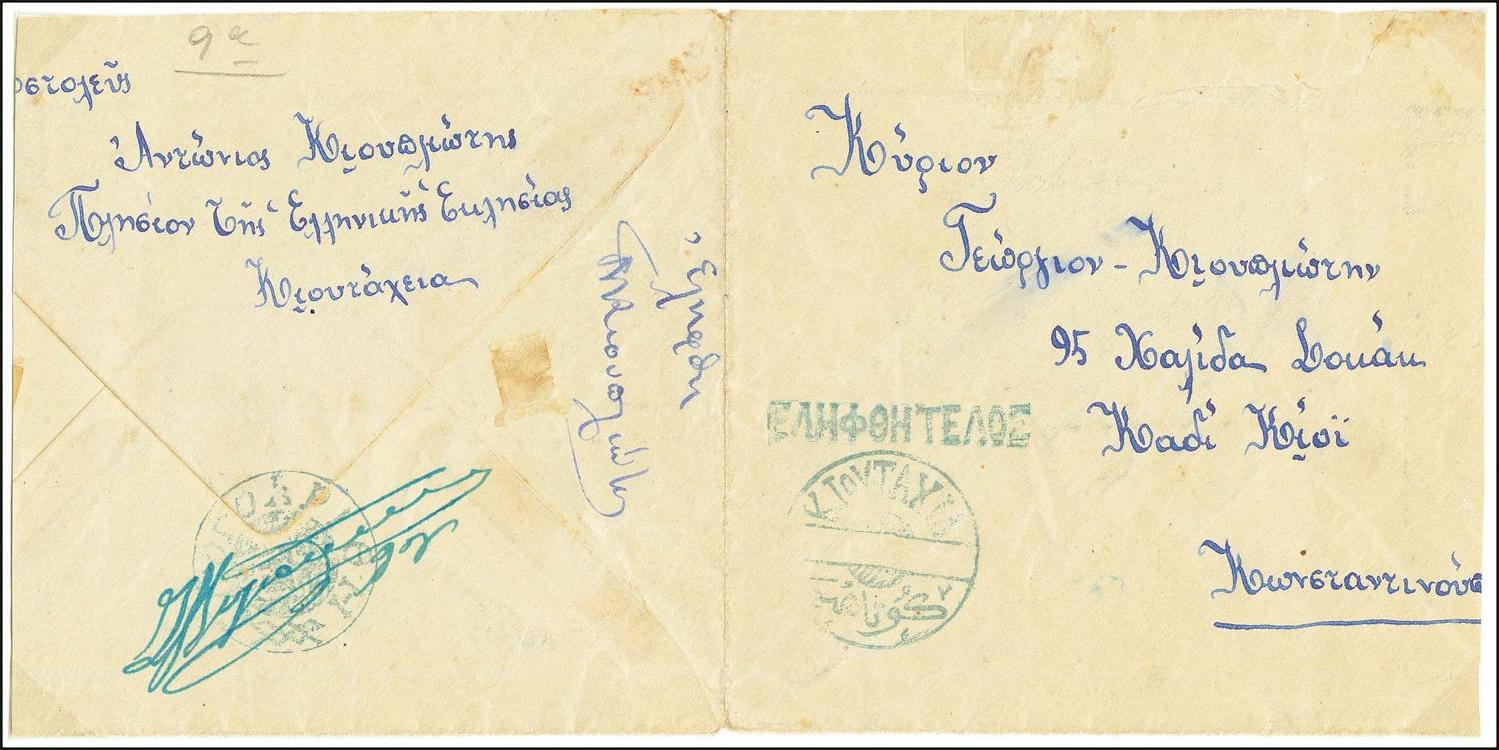 9α
οστολεὺς
Ἀντώνιος Κιουπλιώτης
Πλησίον τῆς Ἑλληνικῆς Ἐκλησίας
Κιουτάχεια
Ἐλήφθη
Κιουπλιώτης
Κύριον
Γεώργιον - Κιουπλιώτην
95 Χαλίδα Σοκάκ
Καδὶ Κιοϊ
Κωνσταντινούπ
ΕΛΗΦΘΗ ΤΕΛΟΣ
ΚΙΟΥΤΑΧΙΑ
كوتاهيه